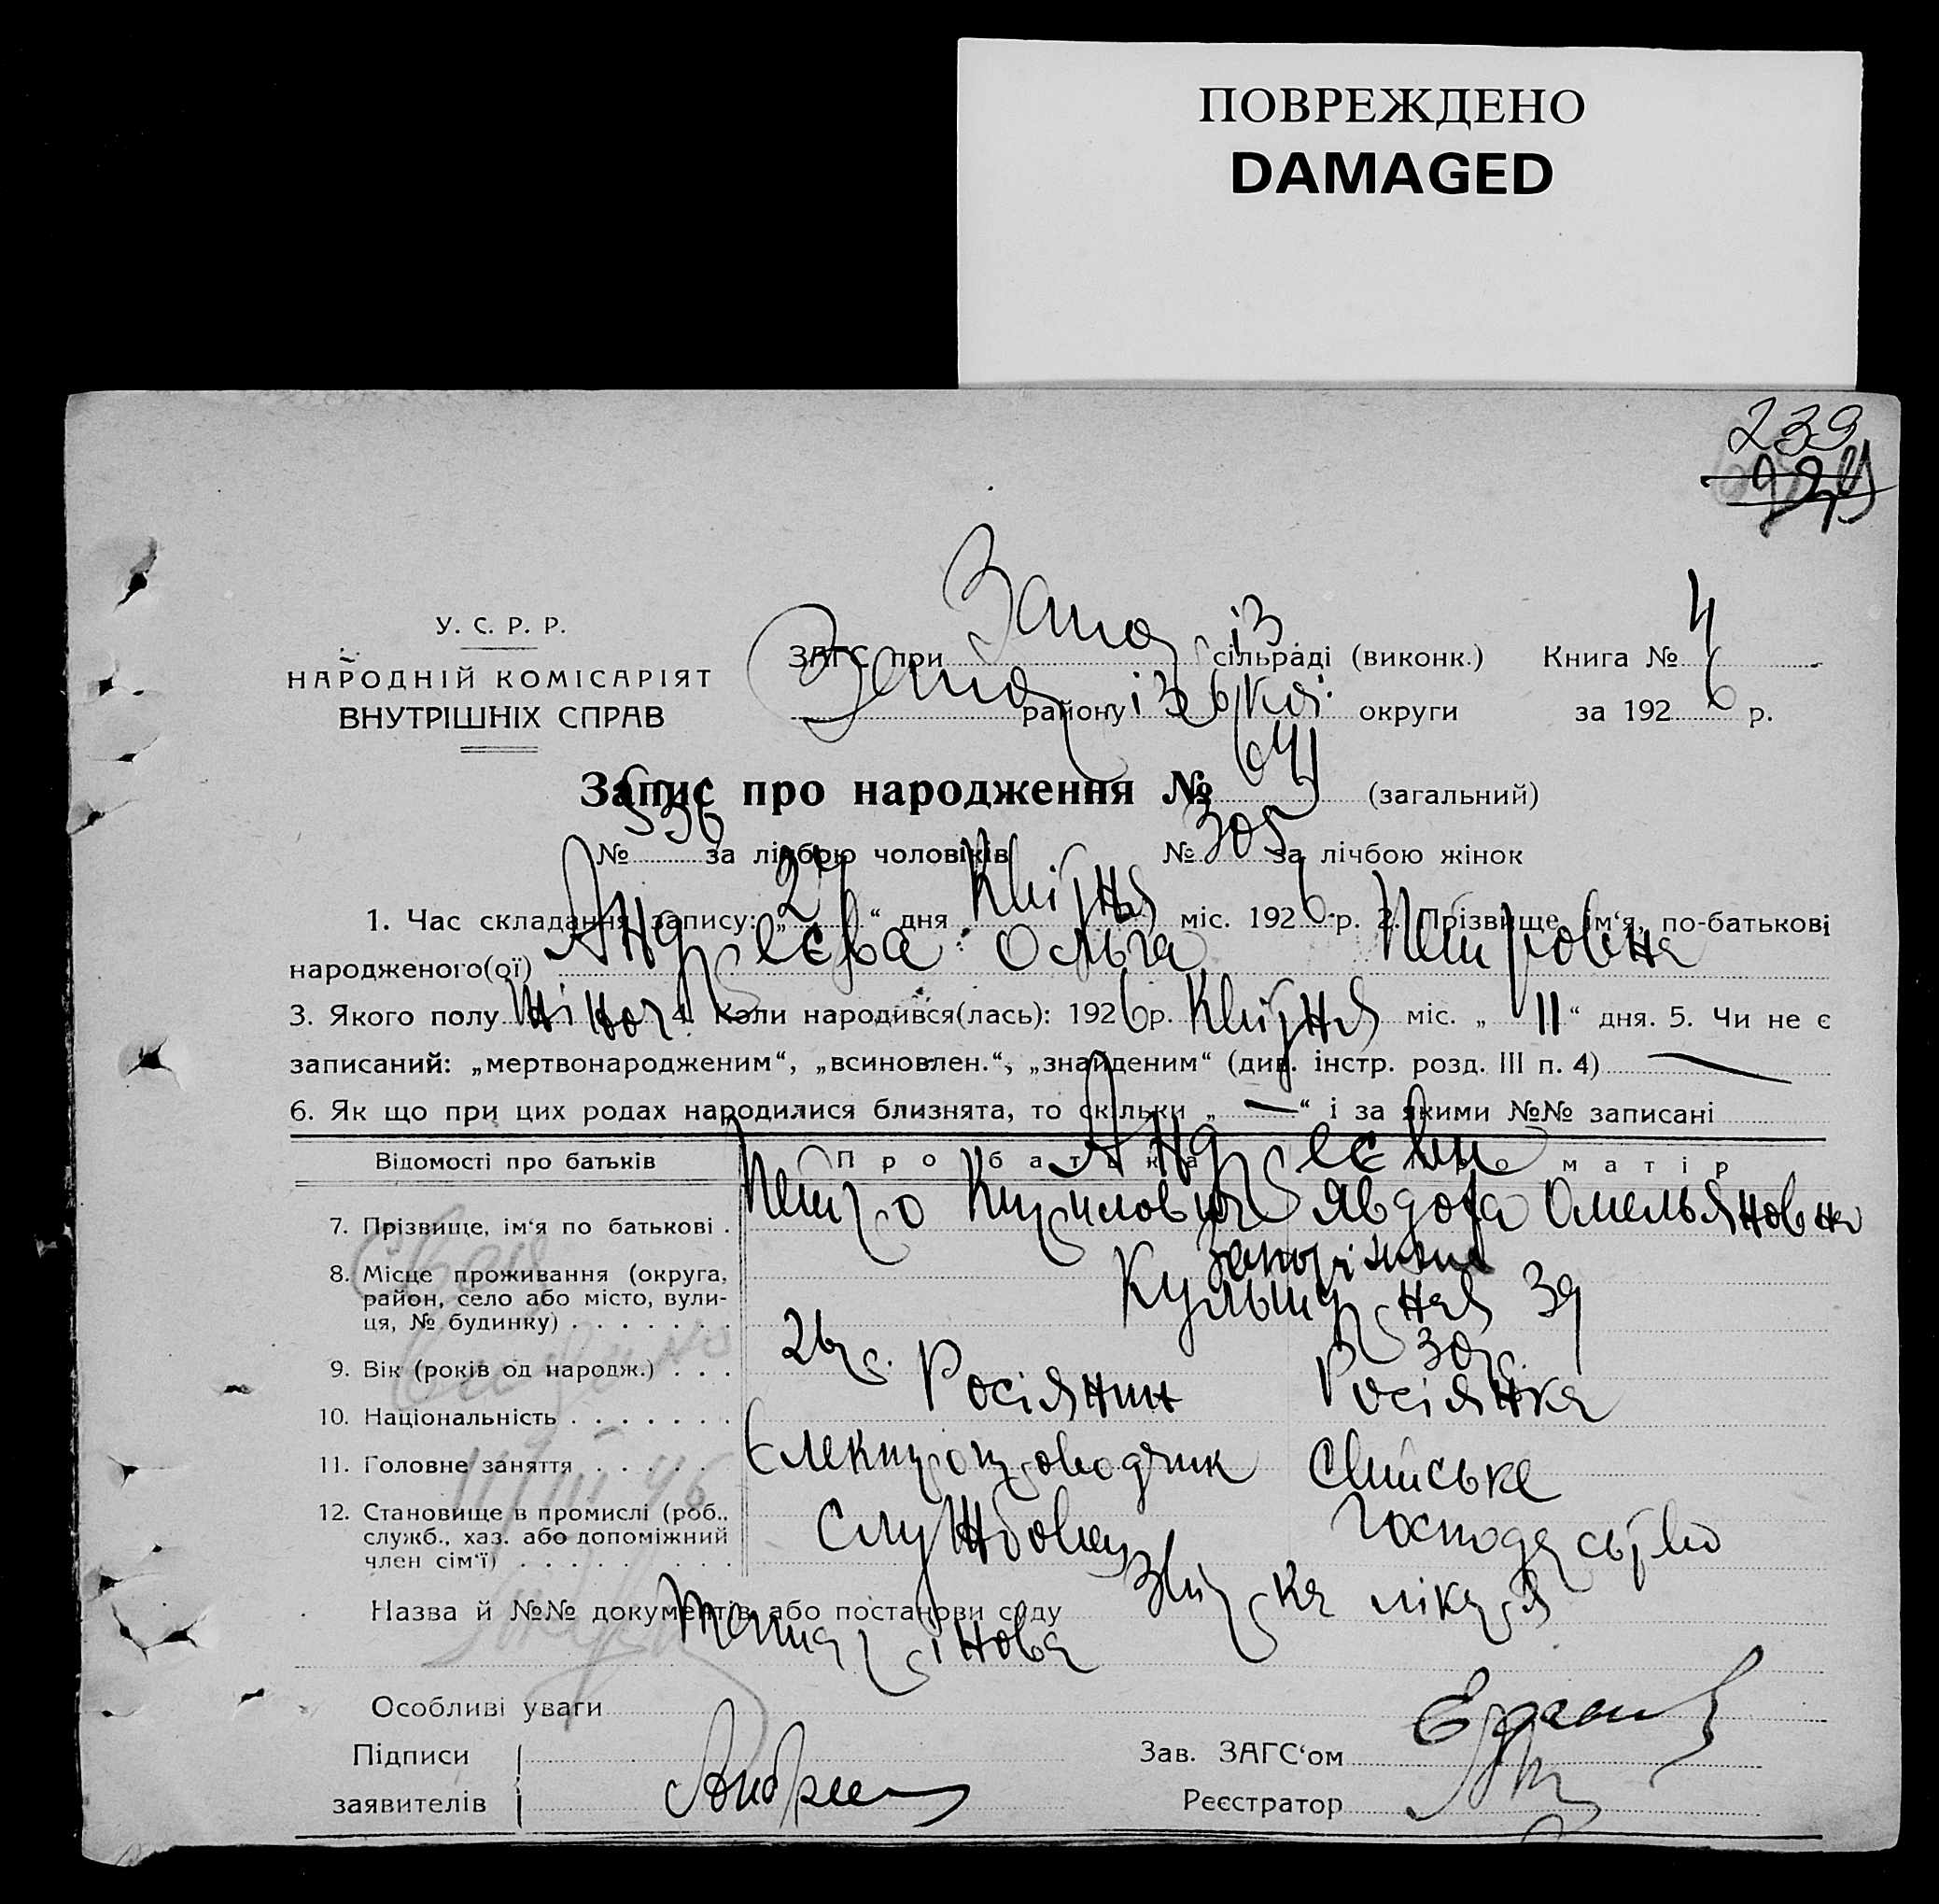 ПОВРЕЖДЕНО
DAMAGED
239
У. С. Р. Р.
НАРОДНІЙ КОМІСАРІЯТ
ВНУТРІШНІХ СПРАВ
ЗАГС при Запорiз сільраді (виконк.) Книга № 4
Запорізької району округи за 1926 р.
Запис про народження № 641 (загальний)
№ 336 за лічбою чоловіків № 305 за лічбою жінок
1. Час складання запису: „24“ дня Квітня міс. 1926 р. 2. Прізвище, ім‘я, по-батькові
народженого(ої) Андреєва Ольга Петровна
3. Якого полу жіноч 4. Коли народився(лась): 1926 р. Квітня міс. „11“ дня. 5. Чи не є
записаний: „мертвонародженим“, „всиновлен.“, „знайденим“ (див. інстр. розд. III п. 4) —
6. Як що при цих родах народилися близнята, то скільки „—“ і за якими №№ записані
Відомості про батьків Про батька Про матір
Андреєви
7. Прізвище, ім‘я по батькові . Петро Кирилович Явдоха Омельяновна
8. Місце проживання (округа, район, село або місто, вулиця, № будинку) . . . . . . . Запоріжжя
Культурная 39
9. Вік (років од народж.) . . . 26 р. 30 р.
10. Національність . . . . . . . Росіянин Росіянка
11. Головне заняття . . . . . Єлектропроводчик Сільське
12. Становище в промислі (роб., служб., хаз. або допоміжний член сім‘ї) . . . . . . . . . Службовец господарство
Назва й №№ документів або постанови суду Звістка лікаря
Особливі уваги
Підписи
заявителів Андреев
Зав. ЗАГС‘ом
Реєстратор